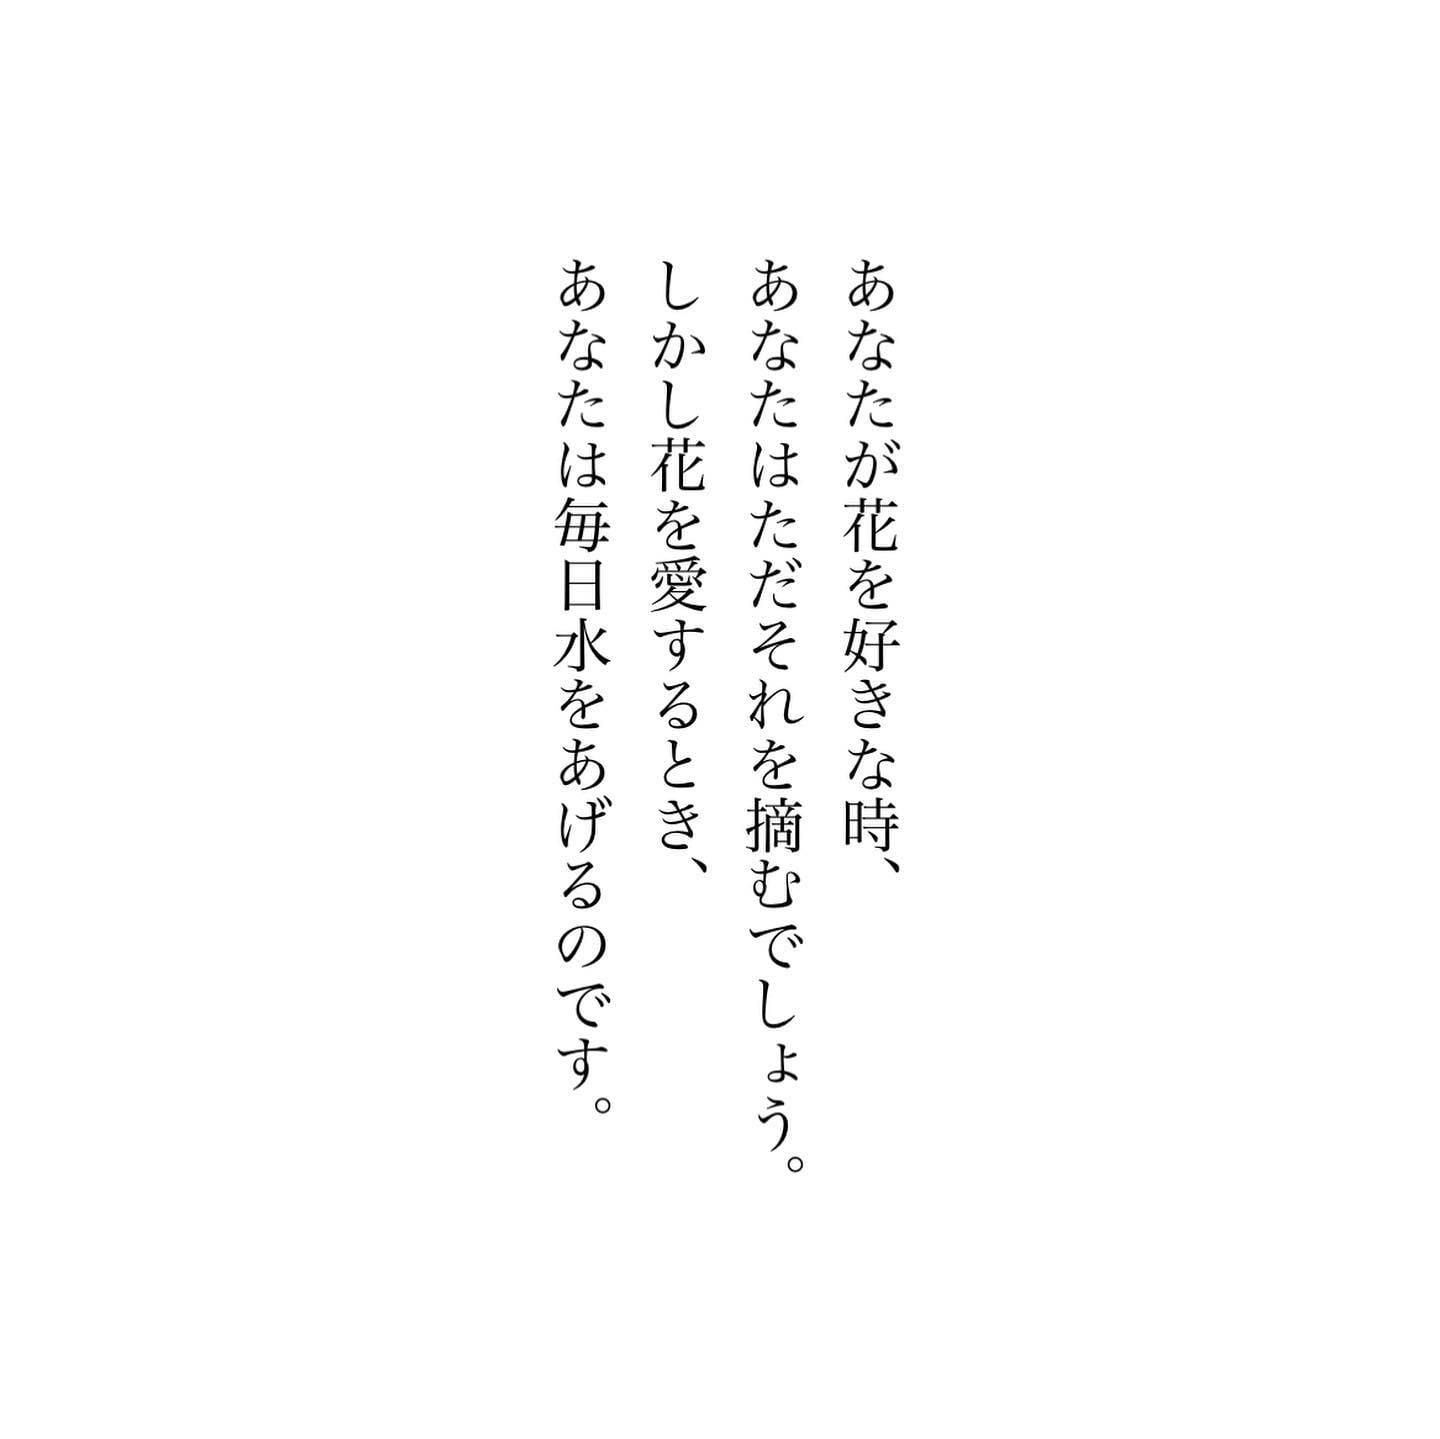 あなたが花を好きな時、
あなたはただそれを摘むでしょう。
しかし花を愛するとき、
あなたは毎日水をあげるのです。